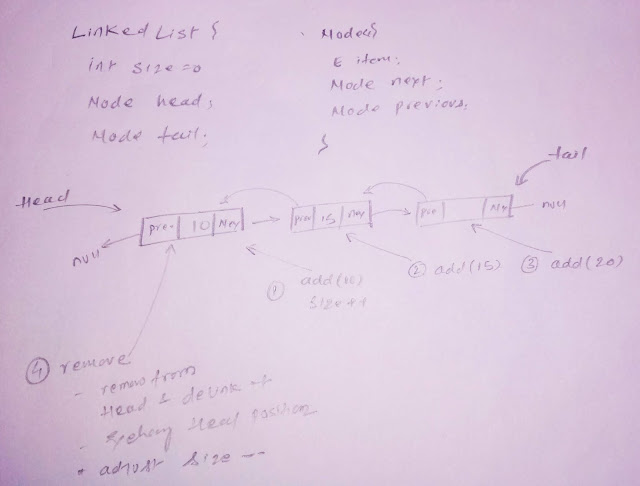 Linked List {
int size=0
Node head;
Node tail;
Node {
E item;
Node next;
Node previous;
}
tail
Head
pre- 10 Nex
pre 15 nex
pre Nex
null
null
① add(10)
size++
② add(15)
③ add(20)
④ remove
- remove from
Head & delink it
- Head position
* adjust size --